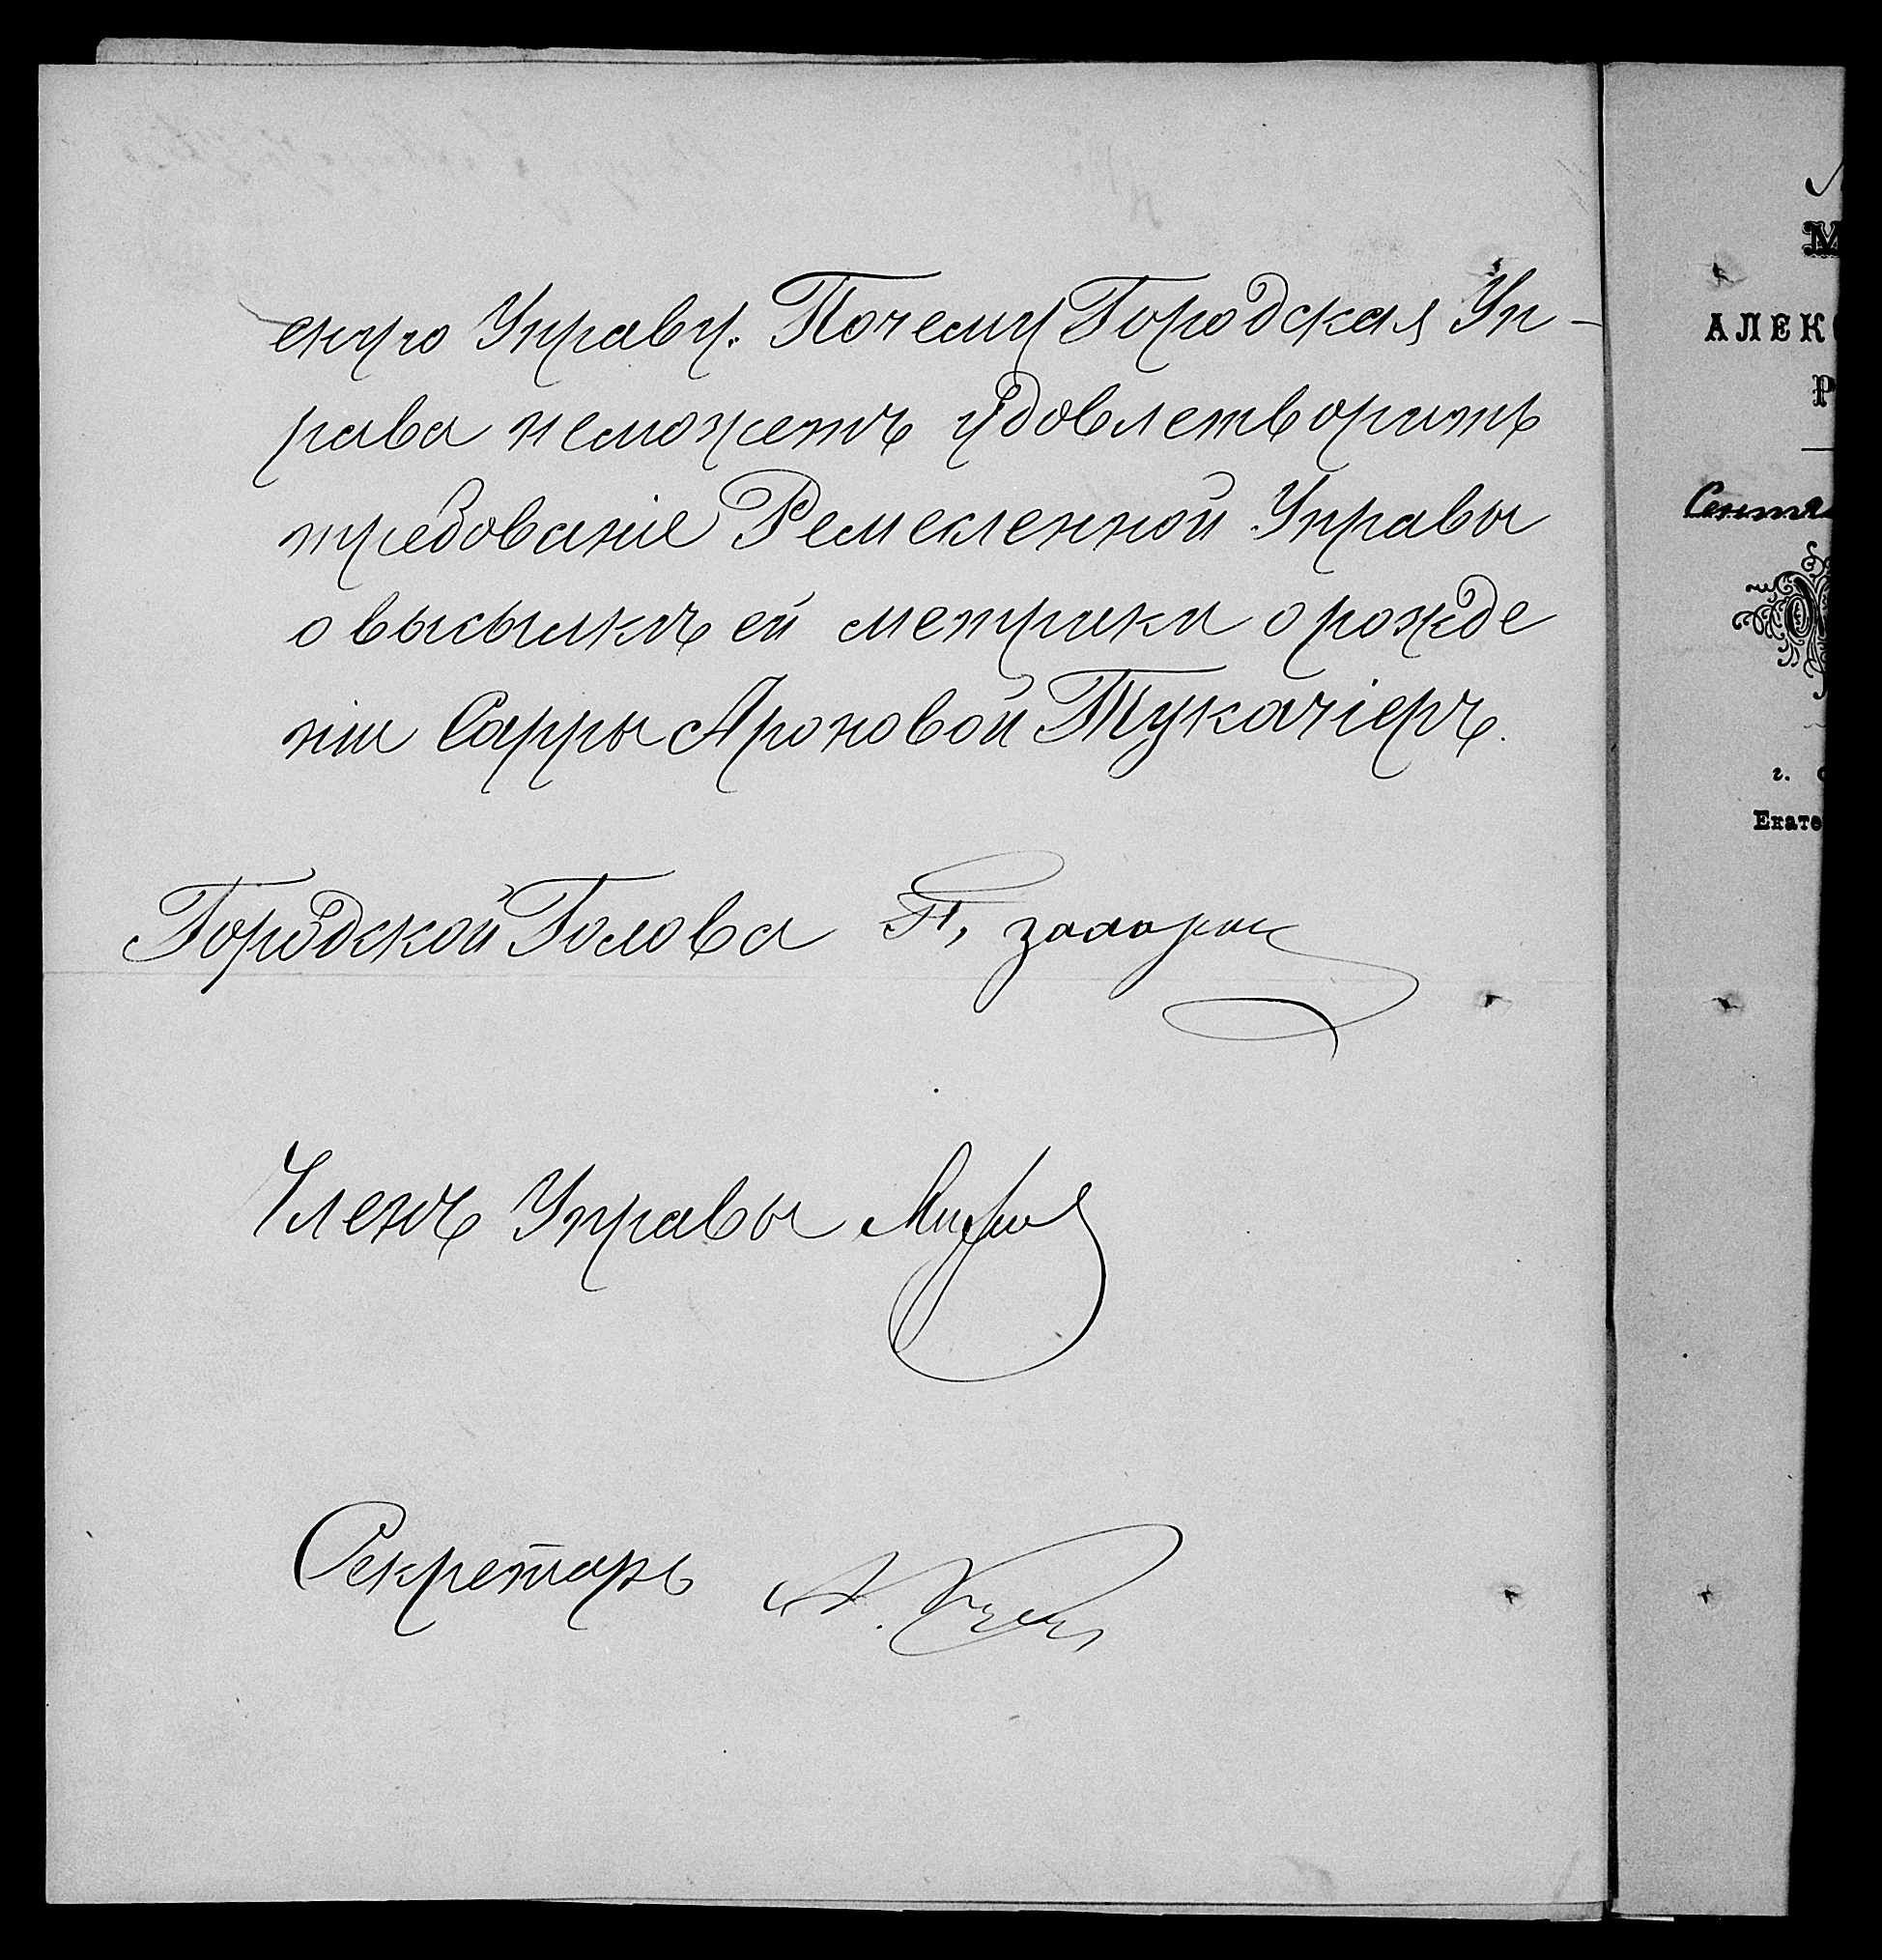 скую Управу. Почему Городская Уп-
рава неможетъ удовлетворить
требованіе Ремесленной Управы
о высылкѣ ей метрики о рожде
ніи Сарры Ароновой Тукачіеръ.
Городской Голова
Членъ Управы
Секретарь
АЛЕК
Сентя
г.
Екате